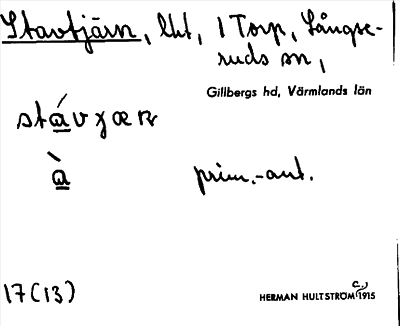 Stavtjärn, lht, 1 Torp, Långse-
ruds sn,
Gillbergs hd, Värmlands län
prim.-ant.
17(13)
HERMAN HULTSTRÖM c. 1915